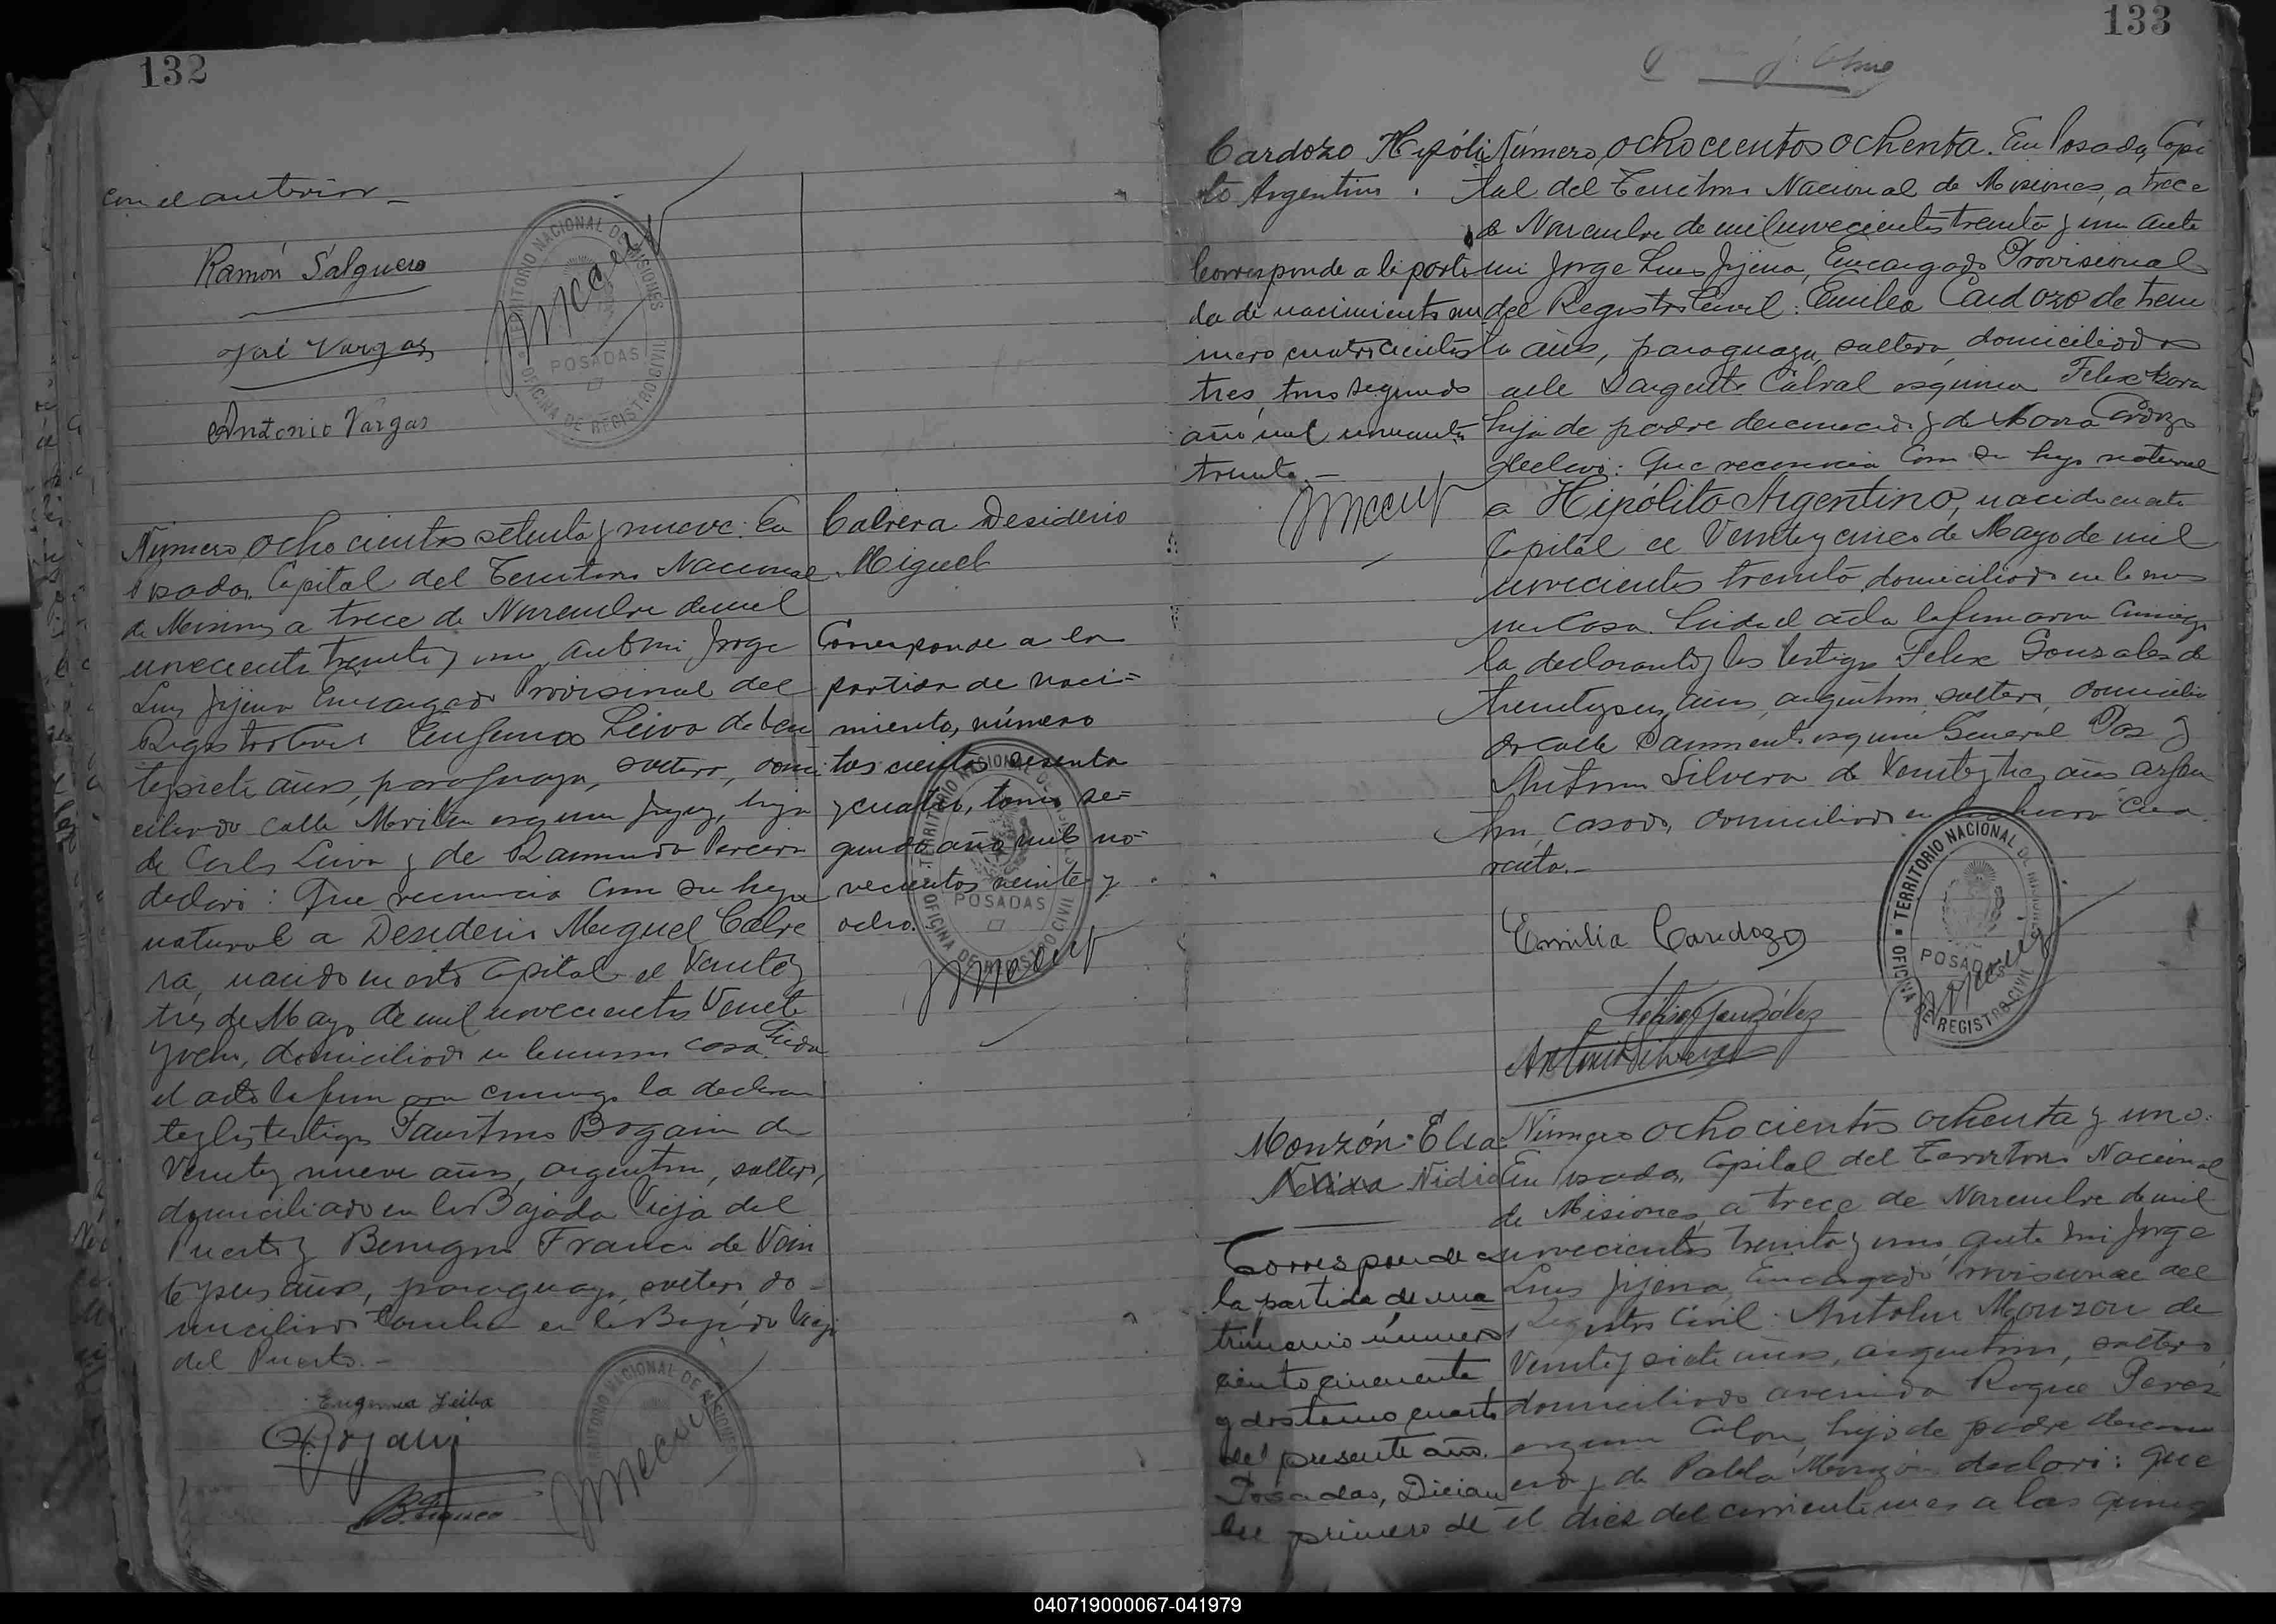 132
con el anterior
Ramón Salguero
José Vargas
Antonio Vargas
TERRITORIO NACIONAL DE MISIONES
POSADAS
OFICINA DE REGISTRO CIVIL
Número ochocientos setenta y nueve: En
Posadas, Capital del Territorio Nacional
de Misiones a trece de Noviembre de mil
novecientos treinta y uno, ante mi Jorge
Luis Jijena Encargado Provisional del
Registro Civil Eugenia Leiva de vein
tisiete años, paraguaya, soltera, domi
ciliada calle esquina Jujuy, hija
de Carlos Leiva y de Ramona Pereira
declaró: Que reconocia como su hijo
natural a Desiderio Miguel Cabre
ra, nacido en esta Capital el Veinte y
tres de Mayo de mil novecientos Veinte
y ocho, domiciliado en la misma casa. Leida
el acta la firmaron conmigo la declaran
te y los testigos Faustino Bogarin de
Veinte y nueve años, argentino, soltero,
domiciliado en la Bajada Vieja del
Puerto y Benigno Franco de Vein
te y seis años, paraguayo, soltero, do-
miciliado tambien en la Bajada Vieja
del Puerto.-
Eugenia Leiba
B. Franco
TERRITORIO NACIONAL DE MISIONES
Cabrera Desiderio
Miguel
Corresponde a la
partida de naci=
miento, número
tos cientos sesenta
y cuatro, tomo se=
gundo año mil no-
vecientos veinte y
ocho.
TERRITORIO NACIONAL DE MISIONES
POSADAS
OFICINA DE REGISTRO CIVIL
133
Cardozo Hipóli
to Argentino.
Corresponde a la parti
da de nacimiento nu
mero cuatrocientos
tres, tomo segundo
año mil novecientos
treinta.-
Número, ochocientos ochenta. En Posadas, Capi
tal del Territorio Nacional de Misiones, a trece
de Noviembre de mil novecientos treinta y uno ante
mi Jorge Luis Jijena, Encargado Provisional
del Registro Civil: Emilia Cardozo de trein
ta años, paraguaya, soltera, domiciliada
calle Sargento Cabral esquina Felix
hija de padre desconocido y de Cardozo
declaró: Que reconocia como su hijo natural
a Hipólito Argentino, nacido en esta
Capital el Veinte y cinco de Mayo de mil
novecientos treinta, domiciliado en la mis
ma casa. Leida el acta la firmaron conmigo
la declarante y los testigos Felix Gonzales de
treinta y seis años, argentino, soltero, domicilia
do calle Sarmiento esquina General Paz y
Antonio Silvera de Veinte y tres años argen
tino, casado, domiciliado en la Chacra
Emilia Cardozo
Félix González
Antonio Silvera
TERRITORIO NACIONAL DE MISIONES
POSADAS
OFICINA DE REGISTRO CIVIL
Monzón Elsa
Nidia
Corresponde a
la partida de ma
trimonio número
ciento cincuenta
y dos tomo cuarto
del presente año.
Posadas, Diciem
bre primero de
Número ochocientos ochenta y uno:
En Posadas, Capital del Territorio Nacional
de Misiones, a trece de Noviembre de mil
novecientos treinta y uno, ante mi Jorge
Luis Jijena Encargado Provisional del
Registro Civil: Antolin Monzon de
Veinte y siete años, argentino, soltero,
domiciliado avenida Roque Perez
esquina Colon, hijo de padre descono
cido y de Pabla Monzón declaró: Que
el diez del corriente mes a las quince
040719000067-041979